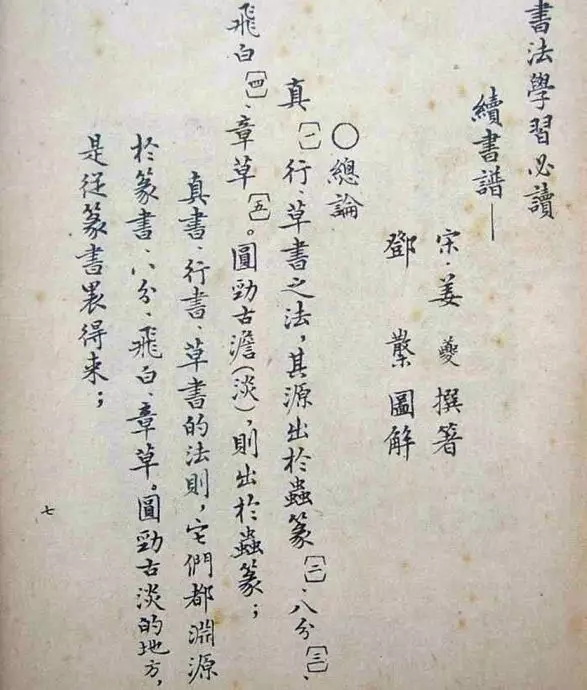 書法學習必讀
續書譜——
宋·姜夔撰著
鄧散圖解
〇總論
真〔一〕行、草書之法，其源出於蟲篆〔二〕、八分〔三〕、
飛白〔四〕、章草〔五〕。圓勁古澹(淡)，則出於蟲篆；
真書、行書、草書的法則，它們都淵源
於篆書、八分、飛白、章草。圓勁古淡的地方，
是從篆書裏得來；
七